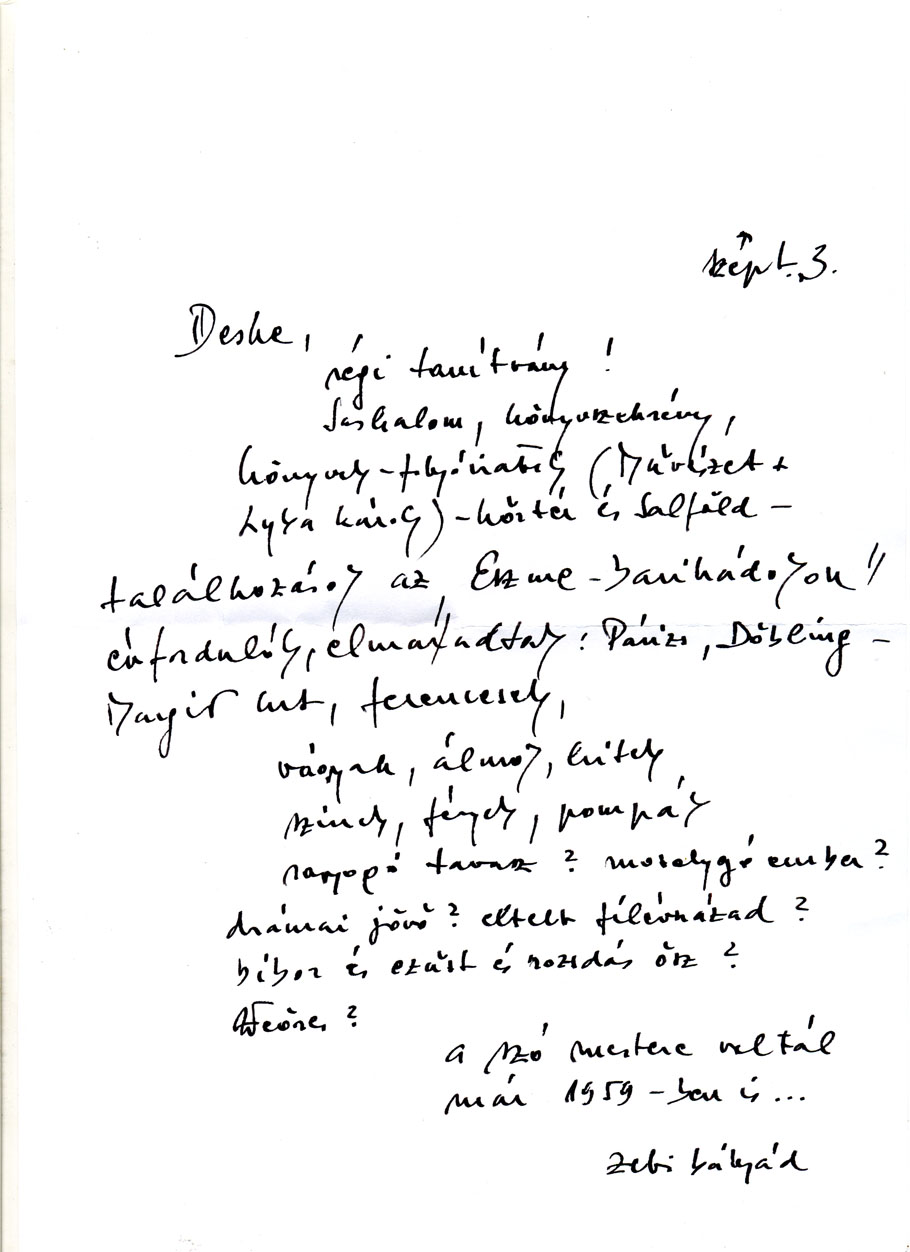 szept. 3.
Deske,
régi tanítvány!
Sashalom, könyvszekrény,
könyvek-folyóiratok (Művészet +
Lyka Károly) - körtér és Salföld -
találkozások az Eszme-barikádokon"
évfordulók, elmaradtak: Párizs, Döbling -
Margit krt, ferencesek,
vágyak, álmok, hitek
színek, fények, pompák
ragyogó tavasz? mosolygó ember?
drámai jövő? eltelt félévszázad?
bíbor és ezüst és rozsdás ősz?
Weöres?
a szó mestere voltál
már 1959-ben is...
Zebi bátyád